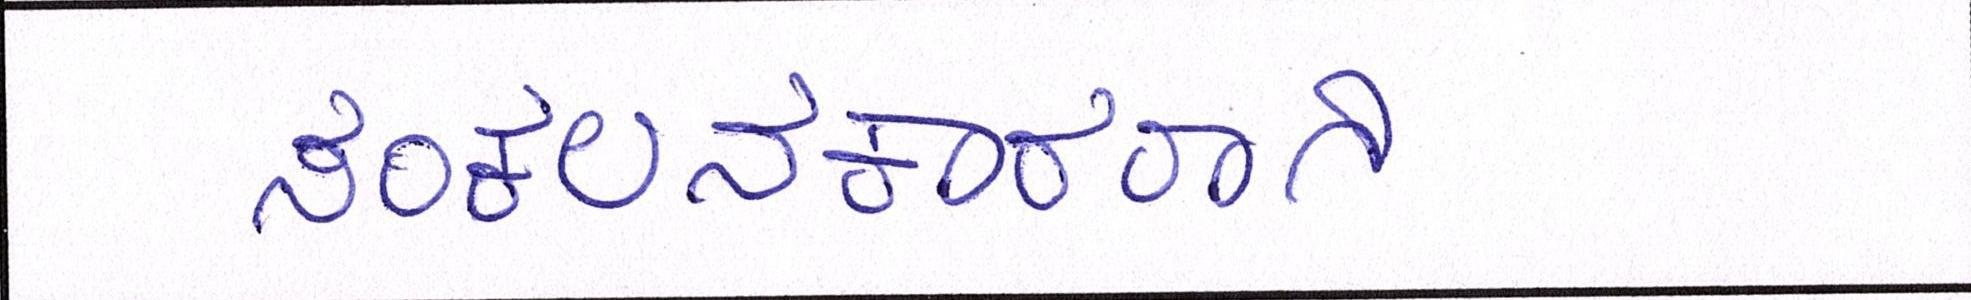 ಸಂಕಲನಕಾರರಾಗಿ